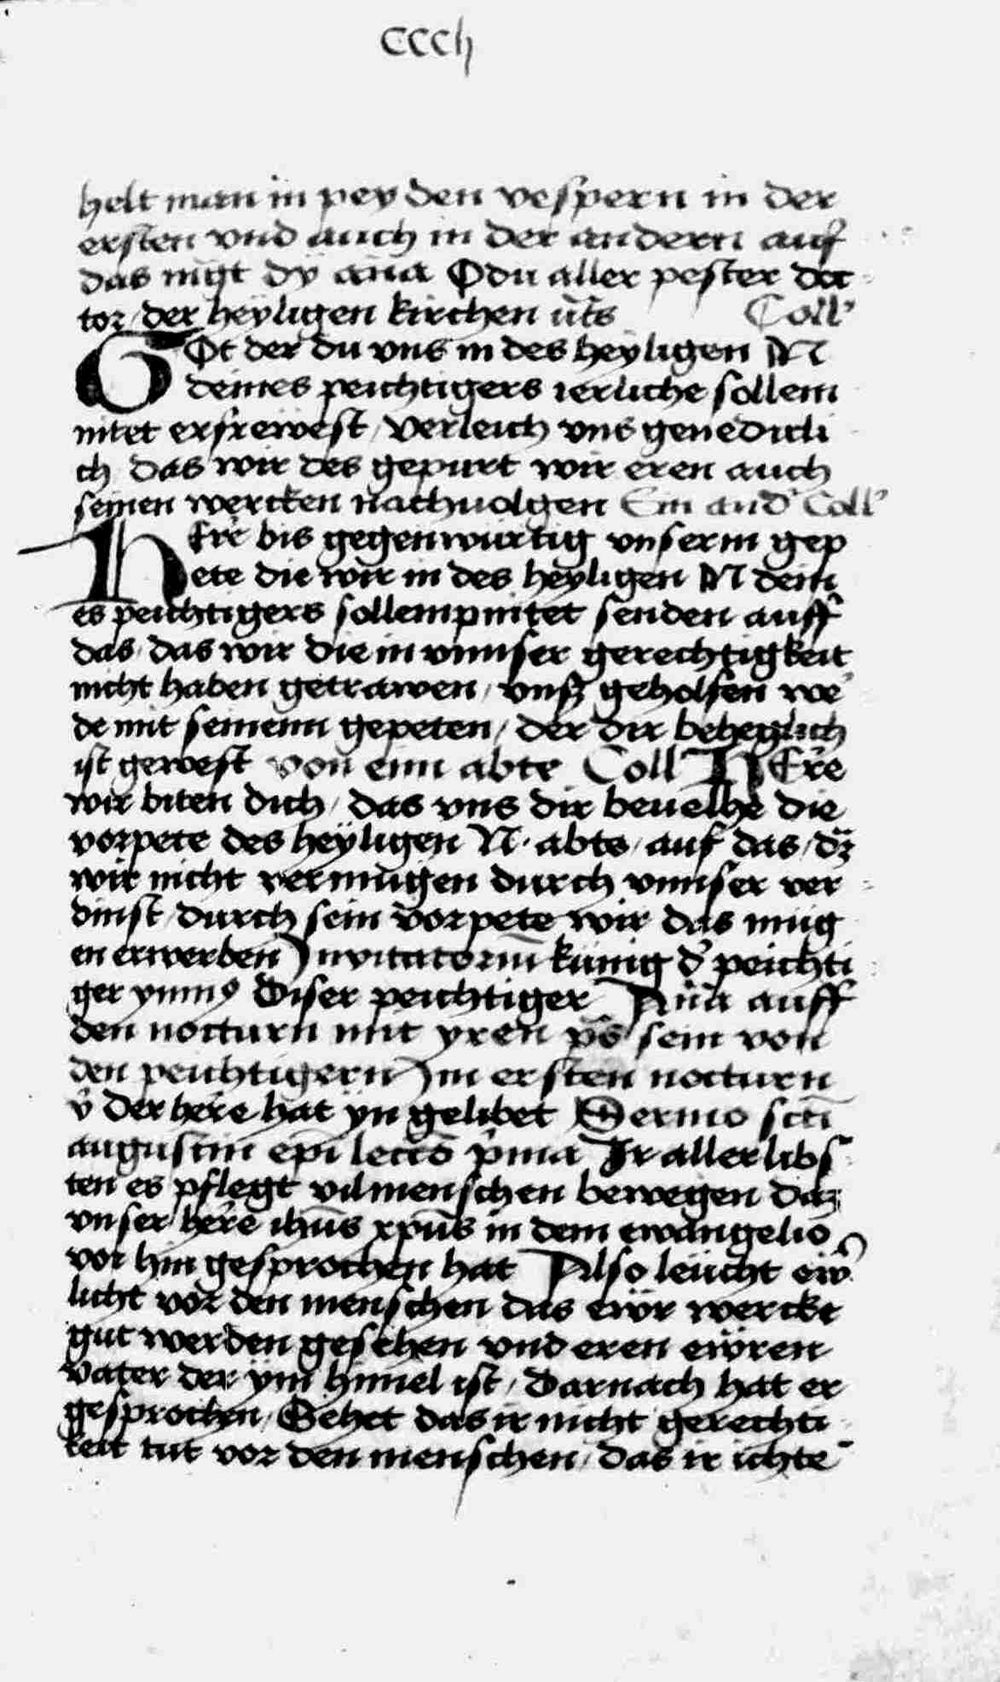 cccli
helt man in peyden vespern in der
ersten vnd auch in der andern auf
das mgt dy ana O du aller pester doc
tor / der heyligen kirchen uts Coll'
GOt der du vns in des heyligen N
deines peichtigers ierliche sollem
nitet erfrewest / verleich vns genedicli
ch das wir des gepurt wir eren auch
seinen wercken nachuolgen Ein and' Coll'
HErre bis gegenwurtig vnserm gep
ete die wir in des heyligen N dein
es peichtigers sollempnitet senden auff
das / das wir die in vnnser gerechtigkeit
nicht haben getrawen / vnß geholfen we
de mit seinem gepeten / der dir beheglich
ist gewest von eim abte Coll HErre
wir biten dich / das vns dir beuelhe die
vorpete des heyligen N. abts / auf das / dz
wir nicht vermugen durch vnnser ver
dinst / durch sein vorpete wir das mug
en erwerben Inuitatoriū kunig d' peichti
ger ymn9 Diser peichtiger Ana auff
den nocturn mit yren ps sein von
den peichtigern Im ersten nocturn
v der here hat yn gelibet Sermo scti
augustin epi lectō pma Ir allerlibs
ten es pflegt vil menschen bewegen daz
vnser here ihus xpus in dem ewangelio
vor hin gesprochen hat Also leücht ew
licht vor den menschen das ewr wercke
gut werden gesehen vnd eren ewren
vater der ym himel ist / Darnach hat er
gesprochen / Sehet das ir nicht gerechti
keit tut vor den menschen / das ir ichte